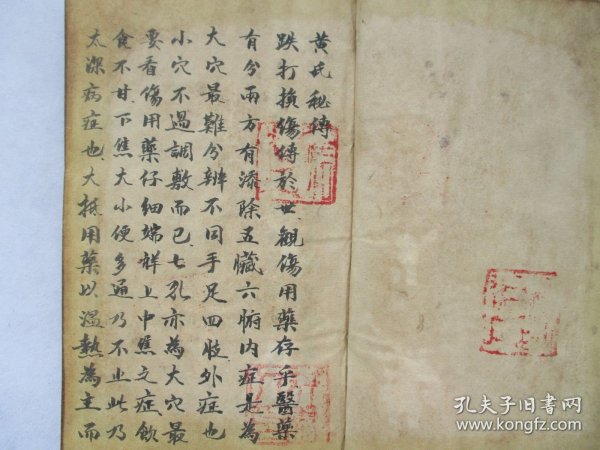 黄氏秘傳
跌打損傷傳於世觀傷用藥存乎醫藥
有分兩方有添除五臟六腑内症是為
大穴最難分辨不同手足四肢外症也
小穴不過調敷而已七孔亦為大穴最
要看傷用藥仔細端祥上中焦之症飲
食不甘下焦大小便多通乃不止此乃
太深病症也大抵用藥以温熱為主而
孔夫子旧书网
www.kongfz.com